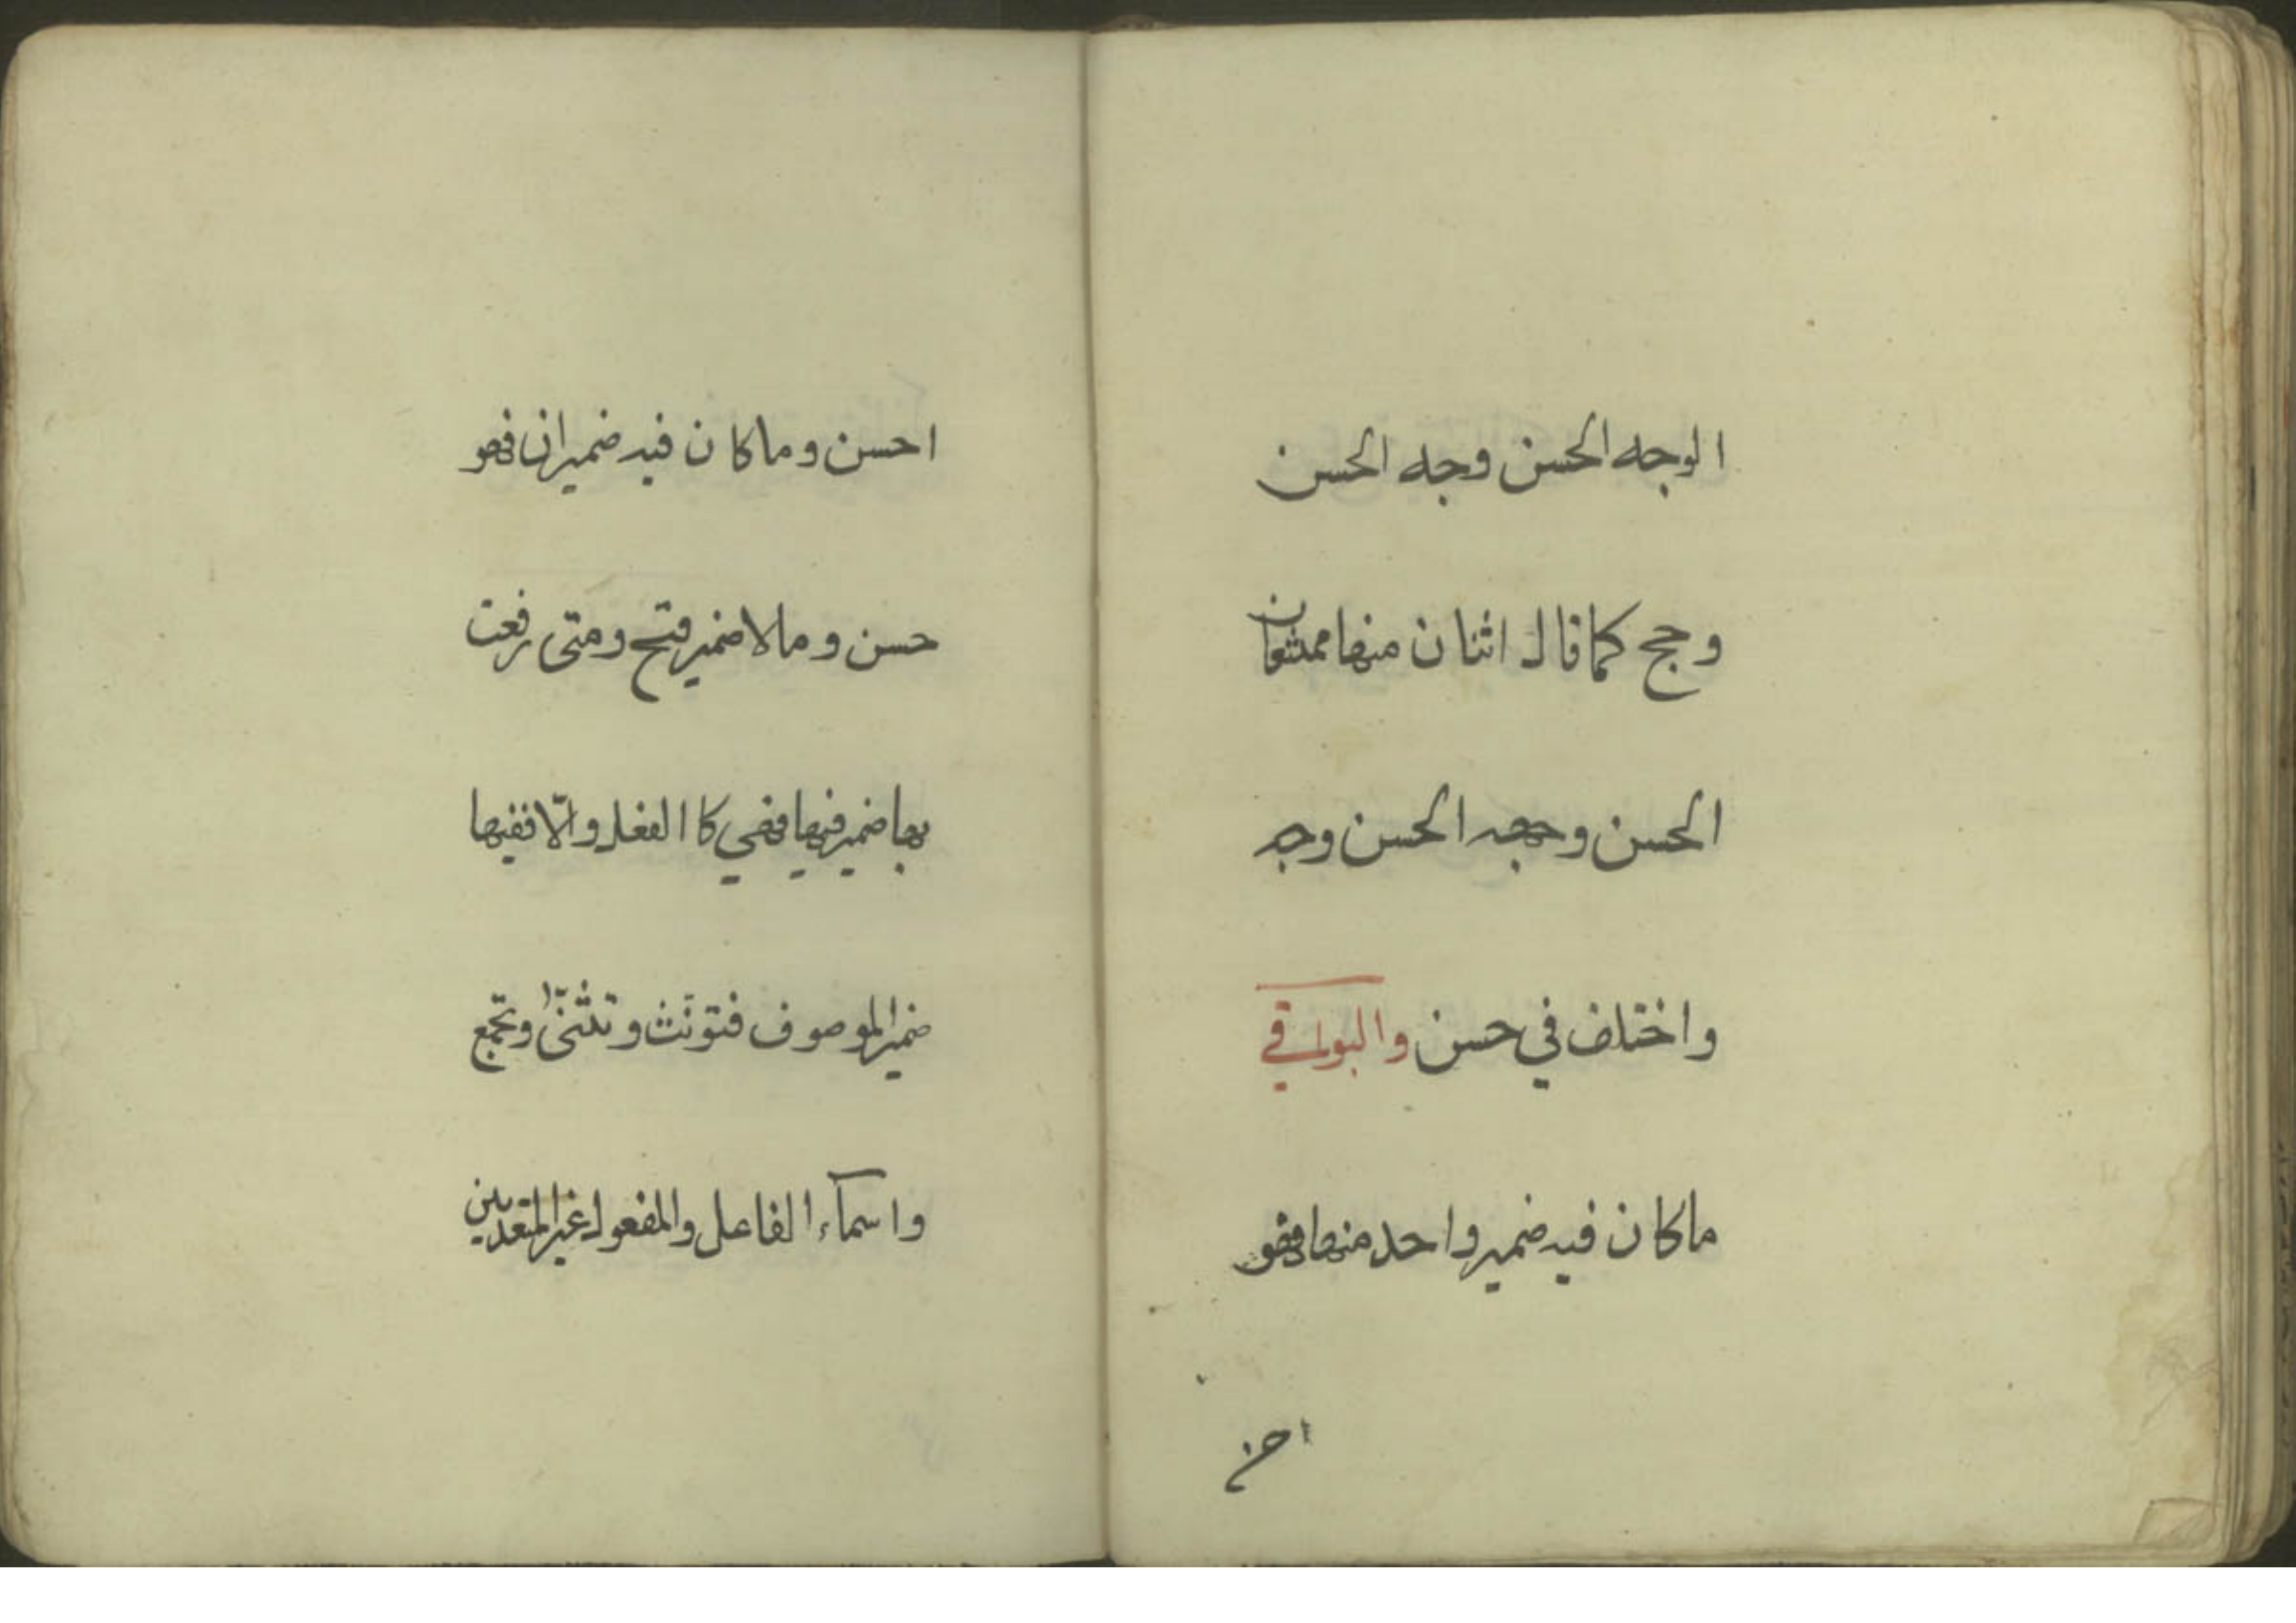 الوجه الحسن وجه الحسن
وجح كما قال اثنان منها ممتنعان
الحسن وجهه الحسن وجه
واختلف في حسن والبواقي
ما كان فيه ضمير واحد منها فهو
احسن وما كان فيه ضميران فهو
حسن وما لا ضمير قتح ومتى رفعت
بها ضمير فيها فهي كا الفعل والّا ففيها
ضمير الموصوف فتونّث وتثنّى وتجمع
واسمآء الفاعل والمفعول غير المتعديين